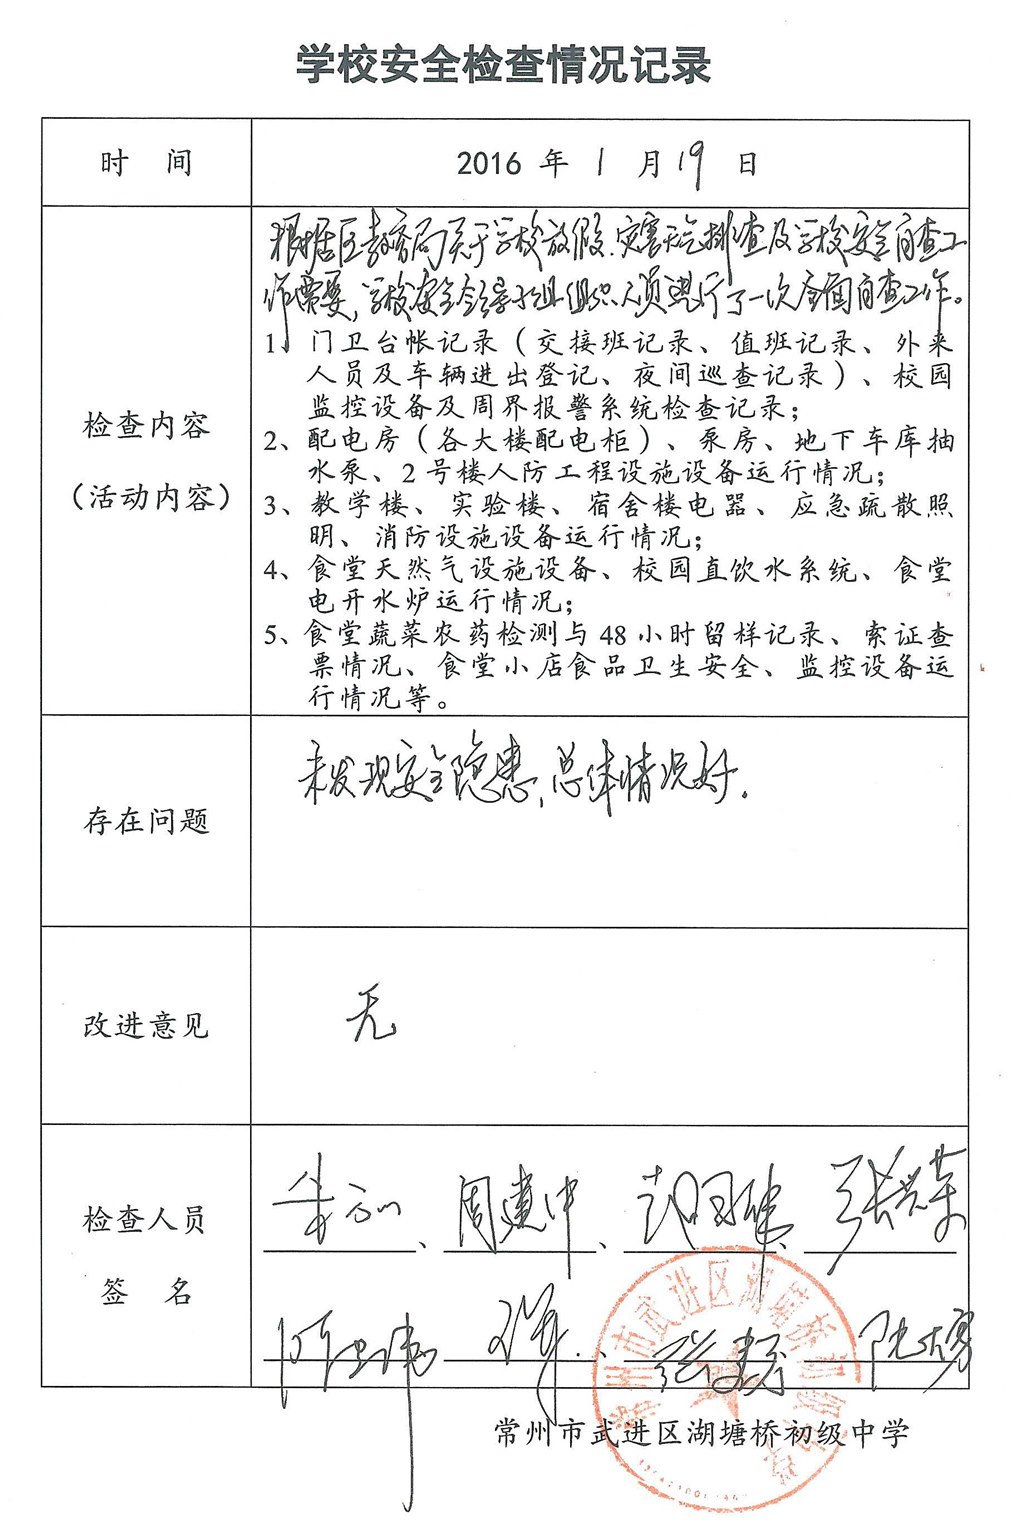 学校安全检查情况记录
时 间
2016 年 1 月 19 日
根据区教育局关于学校放假、灾害天气排查及学校安全自查工
作需要，学校安全领导小组组织人员进行了一次全面自查工作。
检查内容
（活动内容）
1、门卫台帐记录（交接班记录、值班记录、外来
人员及车辆进出登记、夜间巡查记录）、校园
监控设备及周界报警系统检查记录；
2、配电房（各大楼配电柜）、泵房、地下车库抽
水泵、2 号楼人防工程设施设备运行情况；
3、教学楼、实验楼、宿舍楼电器、应急疏散照
明、消防设施设备运行情况；
4、食堂天然气设施设备、校园直饮水系统、食堂
电开水炉运行情况；
5、食堂蔬菜农药检测与 48 小时留样记录、索证查
票情况、食堂小店食品卫生安全、监控设备运
行情况等。
存在问题
未发现安全隐患，总体情况好。
改进意见
无
检查人员
签 名
周建中、
张兴荣
常州市武进区湖塘桥初级中学
常州市武进区湖塘桥初级中学